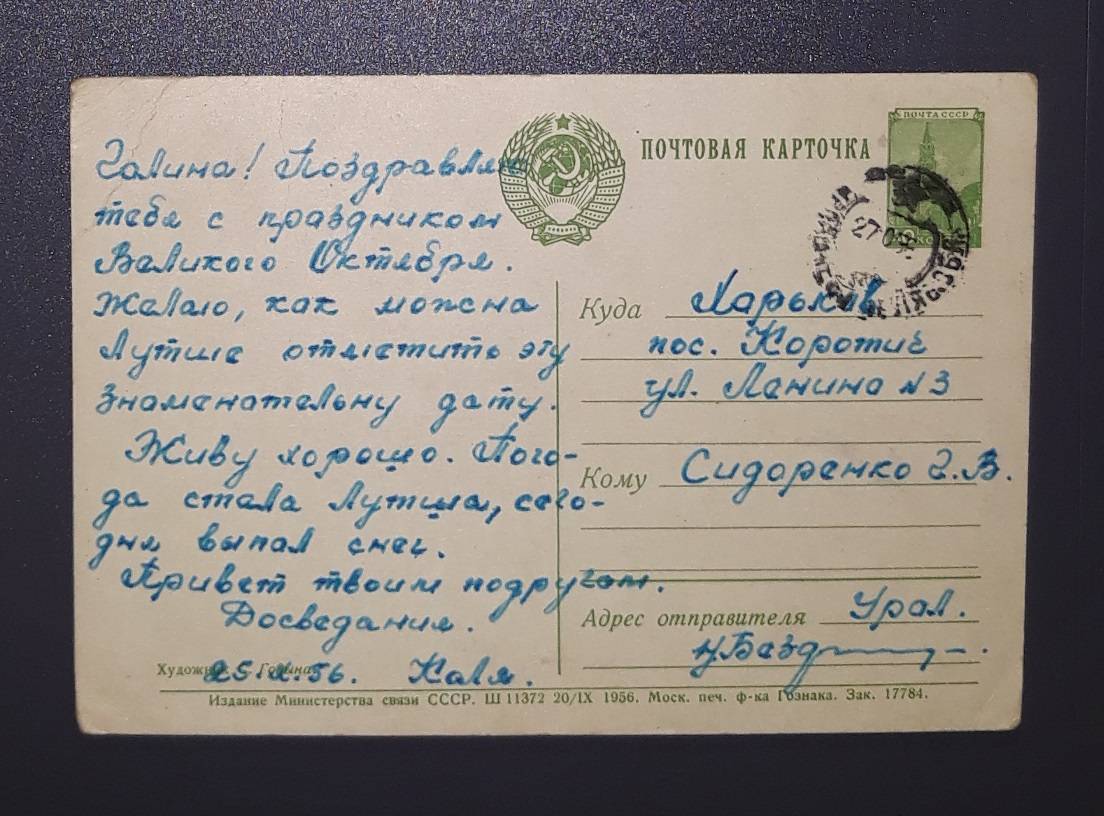 Галина! Поздравляю
тебя с праздником
Великого Октября.
Желаю, как можна
Лутше отметить эту
Знаменательну дату.
Живу хорошо. Пого-
да стала Лутша, сего-
дня выпал снег.
Привет твоим подругам.
Досведания.
25.X.56. Коля.
Художник Е. Гопина
ПОЧТОВАЯ КАРТОЧКА
ПОЧТА СССР
27
Куда Харьков
пос. Коротич
ул. Ленина №3
Кому Сидоренко Г.В.
Адрес отправителя Урал.
Издание Министерства связи СССР. Ш 11372 20/IX 1956. Моск. печ. ф-ка Гознака. Зак. 17784.